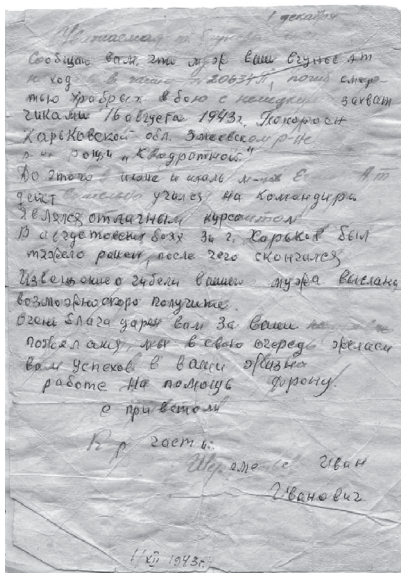 1 декабря
Уважаемая т.
Сообщаю вам, что муж ваш
в 20637Л, погиб смер-
тью храбрых в бою с немецк захват
чиками 16 августа 1943г. Похорон
Харьковской обл. Змиевском р-не
"Квадратной"
До этого июне и июль м-цах
дейст учился на командира
Являлся отличным курсантом
В августовских боях за г. Харьков был
тяжело ранен, после чего скончался
Извещение о гибели вашего мужа выслано,
возможно скоро получите.
Очень благодарен вам за ваши
пожелания, мы в свою очередь желаем
вам успехов в ваши жизни
работе на помощь фрону.
с приветом
К-р части:
Иван
Иванович
1/XII 1943г.